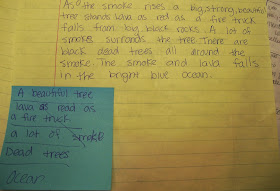 As the smoke rises a big, strong, beautiful
tree stands lava as red as a fire truck
falls from big black rocks. A lot of
smokes surronds the tree. There are
black dead trees all around the
smoke. The smoke and lava falls
in the bright blue ocean.
A beautiful tree
lava as read as
a fire truck
a lot of smoke
Dead trees
Ocean